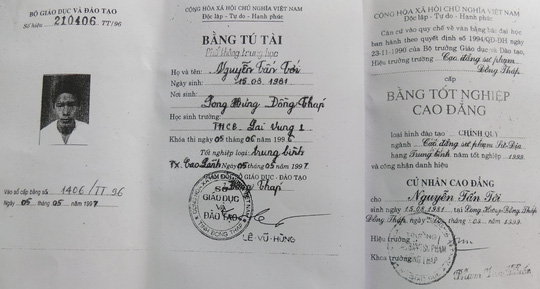 BỘ GIÁO DỤC VÀ ĐÀO TẠO
Số hiệu 210406 TT/96
Vào sổ cấp bằng số 1406/TT 96
Ngày 05 tháng 05 năm 1997
CỘNG HÒA XÃ HỘI CHỦ NGHĨA VIỆT NAM
Độc lập - Tự do - Hạnh phúc
BẰNG TÚ TÀI
Phổ thông trung học
Họ và tên: Nguyễn Tấn Tới
Ngày sinh: 15.03.1981
Nơi sinh:
Long Hưng Đồng Tháp
Học sinh trường:
PTTHCB. Lai Vung 1
Khóa thi ngày 05 tháng 06 năm 199
Tốt nghiệp loại: trung bình
TX. Cao Lãnh ngày 05 tháng 05 năm 1997
SỞ GIÁO DỤC - ĐÀO TẠO
Đồng Tháp
SỞ
GIÁO DỤC
VÀ
ĐÀO TẠO
LÊ-VŨ-HÙNG
CỘNG HÒA XÃ HỘI CHỦ NGHĨA VIỆT NAM
Độc lập - Tự do - Hạnh phúc
Căn cứ vào quy chế về văn bằng bậc đại học
ban hành theo quyết định số 1994/QĐ-ĐH ngày
23-11-1990 của Bộ trưởng Bộ Giáo dục và Đào tạo,
Hiệu trưởng trường Cao đẳng sư phạm
Đồng Tháp
cấp
BẰNG TỐT NGHIỆP
CAO ĐẲNG
loại hình đào tạo CHÍNH QUY
ngành Cao đẳng sư phạm Sử-Địa
hạng Trung bình năm tốt nghiệp 1999
và công nhận danh hiệu
CỬ NHÂN CAO ĐẲNG
cho Nguyễn Tấn Tới
sinh ngày 15.03.1981 tại Long Hưng-Đồng Tháp
Đồng Tháp, ngày tháng năm 1999
Hiệu trưởng
Khoa trưởng